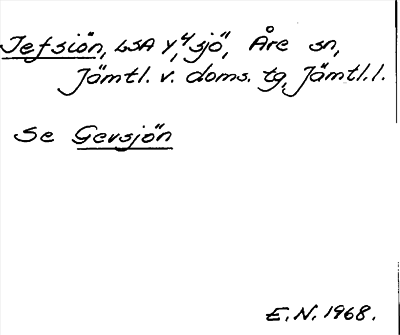 Jefsiön, LSA Y, "sjö", Åre sn,
Jämtl. v. doms. tg, Jämtl. l.
Se Gevsjön
E.N. 1968.